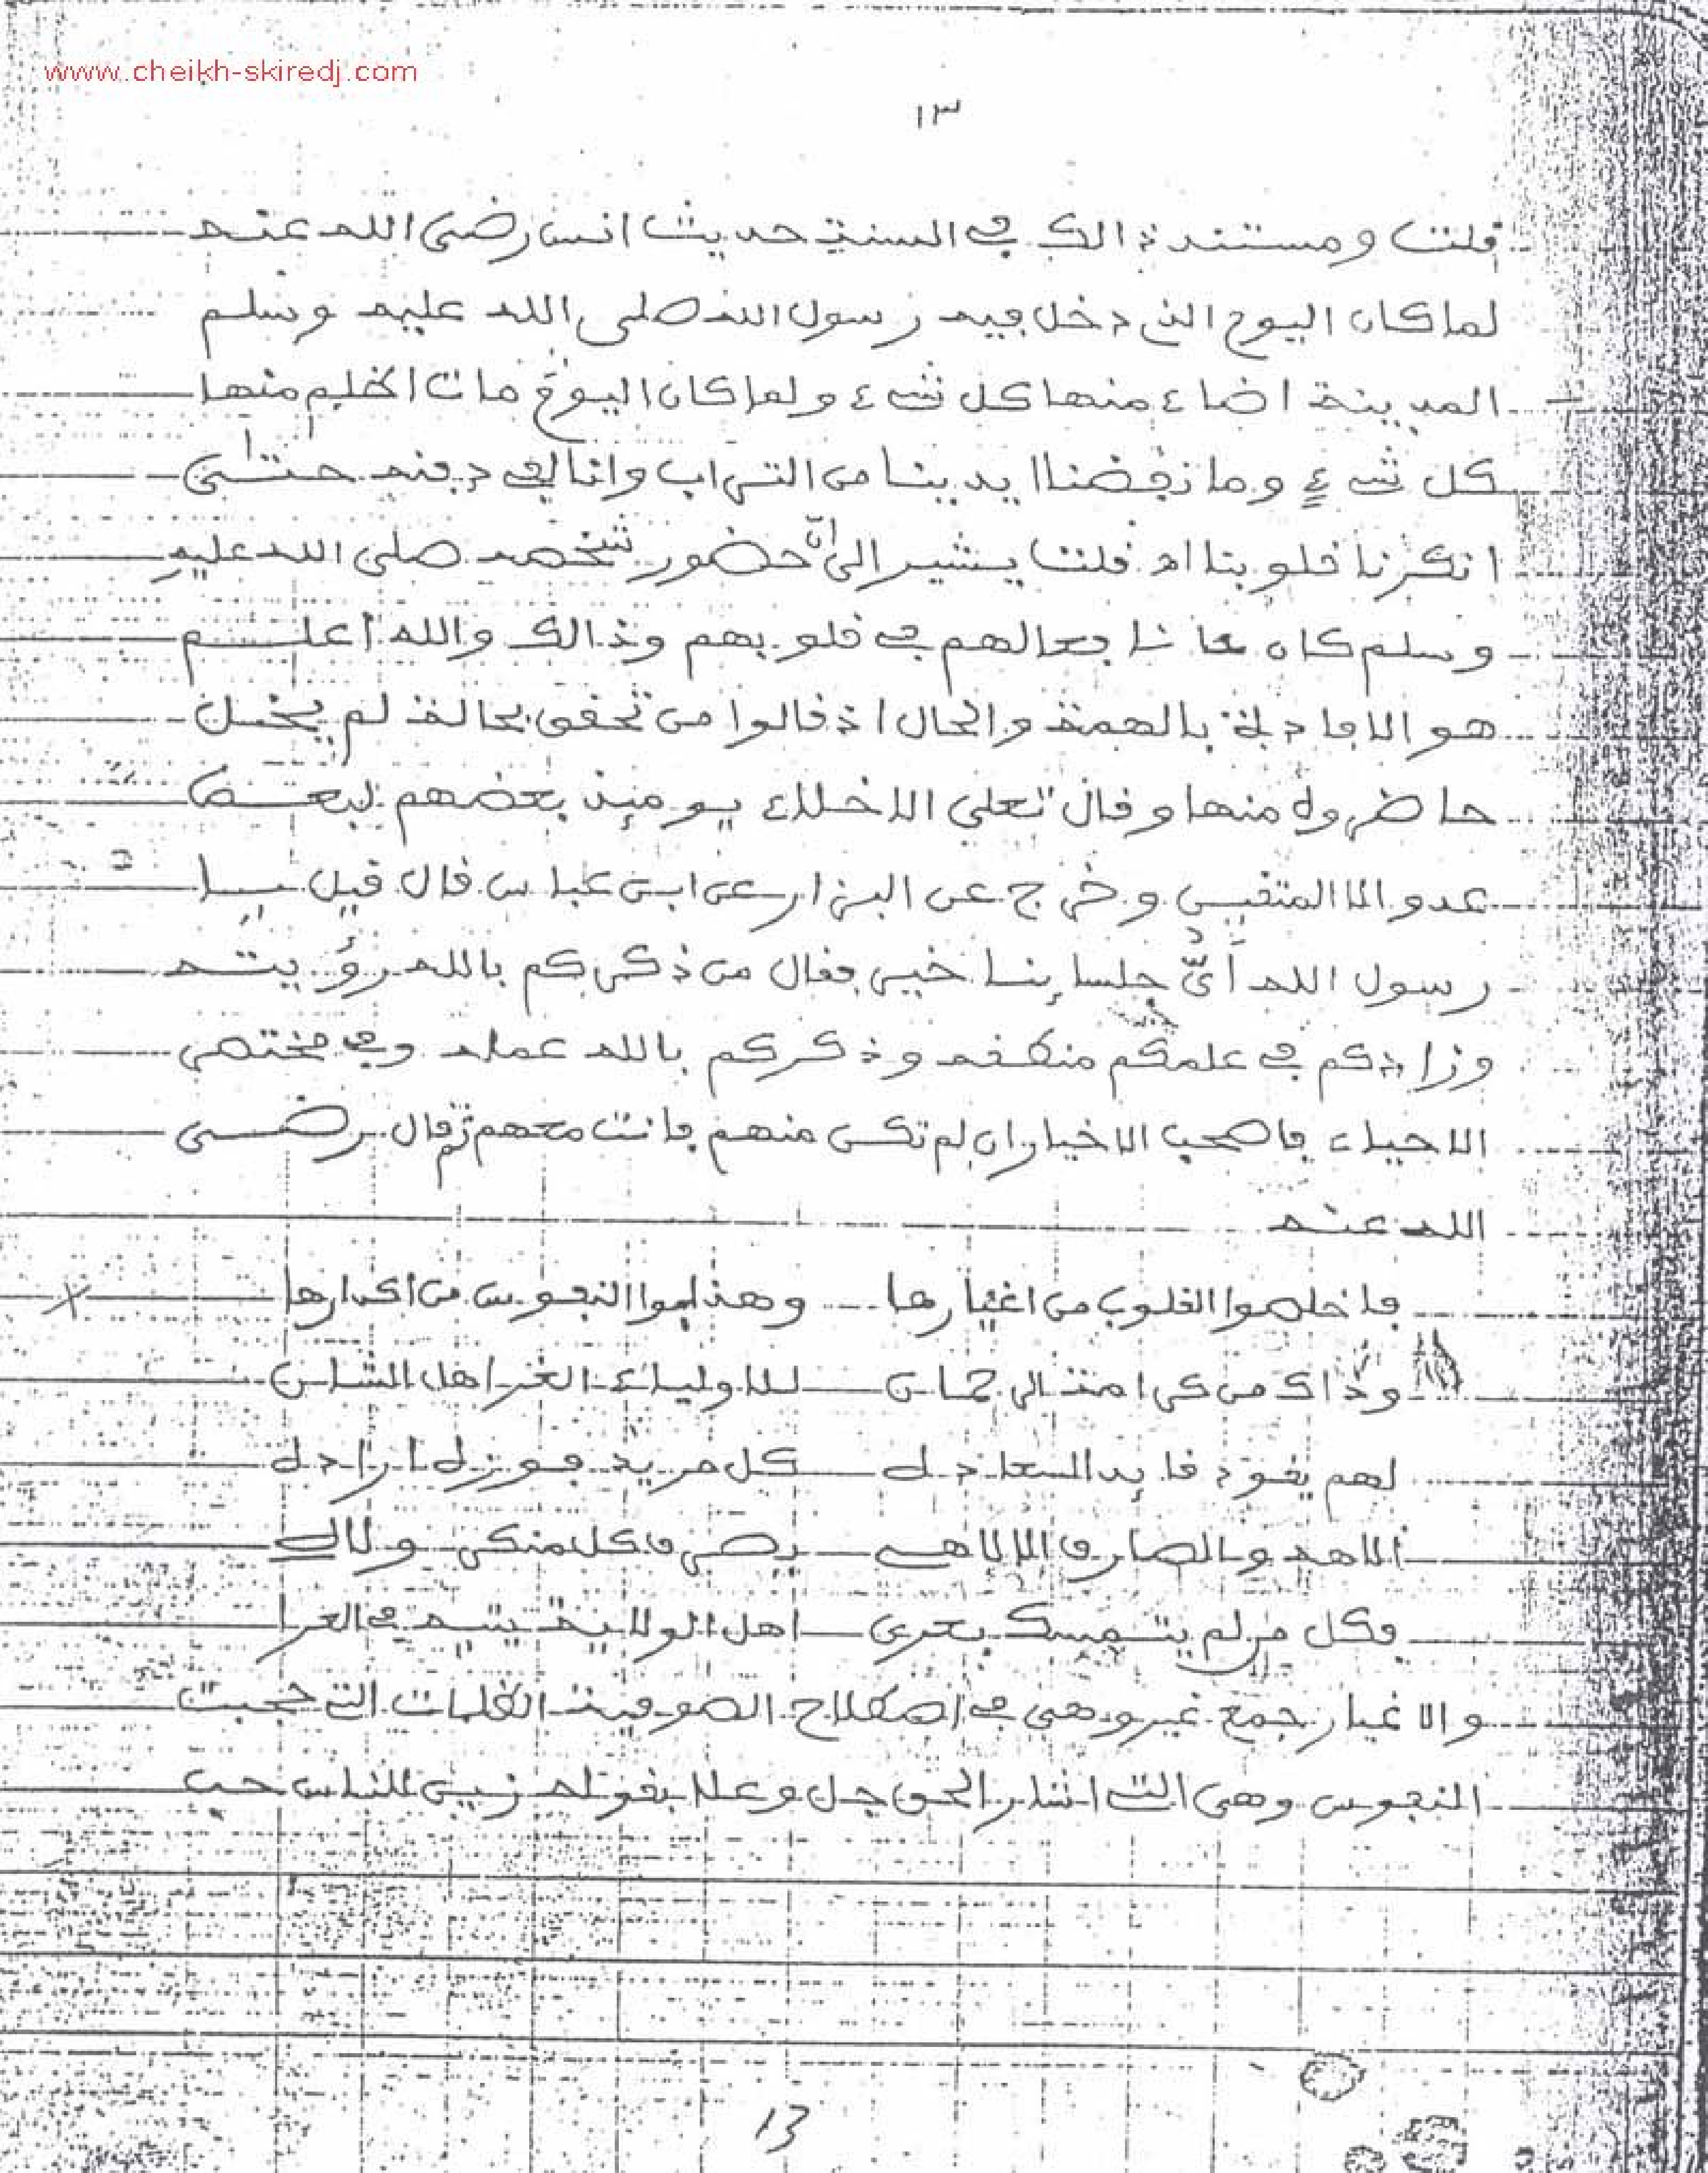 www.cheikh-skiredj.com
١٣
قلت ومستند ذالك في السنة حديث انس رضى الله عنه
لما كان اليوم الذي دخل فيه رسول الله صلى الله عليه وسلم
المدينة اضاء منها كل شيء ولما كان اليوم مات اظلم منها
كل شيءٍ وما نفضنا ايدينا من التراب وانا لفي دفنه حتى
انكرنا قلوبنا اه قلت يشير الى أنّ حضور شخصه صلى الله عليه
وسلم كان فعالهم في قلوبهم وذالك والله أعلم
هو الافادة بالهمة والحال اذ قالوا من تحقق بحالة لم يخل
حاضروه منها وقال تعلى الاخلاء يومئذ بعضهم لبعض
عدو الا المتقين وخرج عن البزار عن ابن عباس قال قيل يا
رسول الله أيّ جلسائنا خير فقال من ذكركم بالله رؤيته
وزادكم في علمكم منطقه وذكركم بالله عمله وفي مختصر
الاحياء فاصحب الاخيار ان لم تكن منهم فانت معهم ثم قال رضي
الله عنه
فاخلصوا القلوب من اغيارها وهذبوا النفوس من أكدارها
وذاك من كل للاولياء الغر اهل الشان
لهم يقود قايد السعادة كل مريد فوزه اراده
الاهي والصارف الالاهي يصرف كل منكر ولاه
وكل من لم يتمسك بعرى اهل الولاية يتيه في العرا
والاغيار جمع غير وهي في اصطلاح الصوفية الظلمات التي حجبت
النفوس وهي التي اشار الحق جل وعلا بقوله زين للناس حب
13